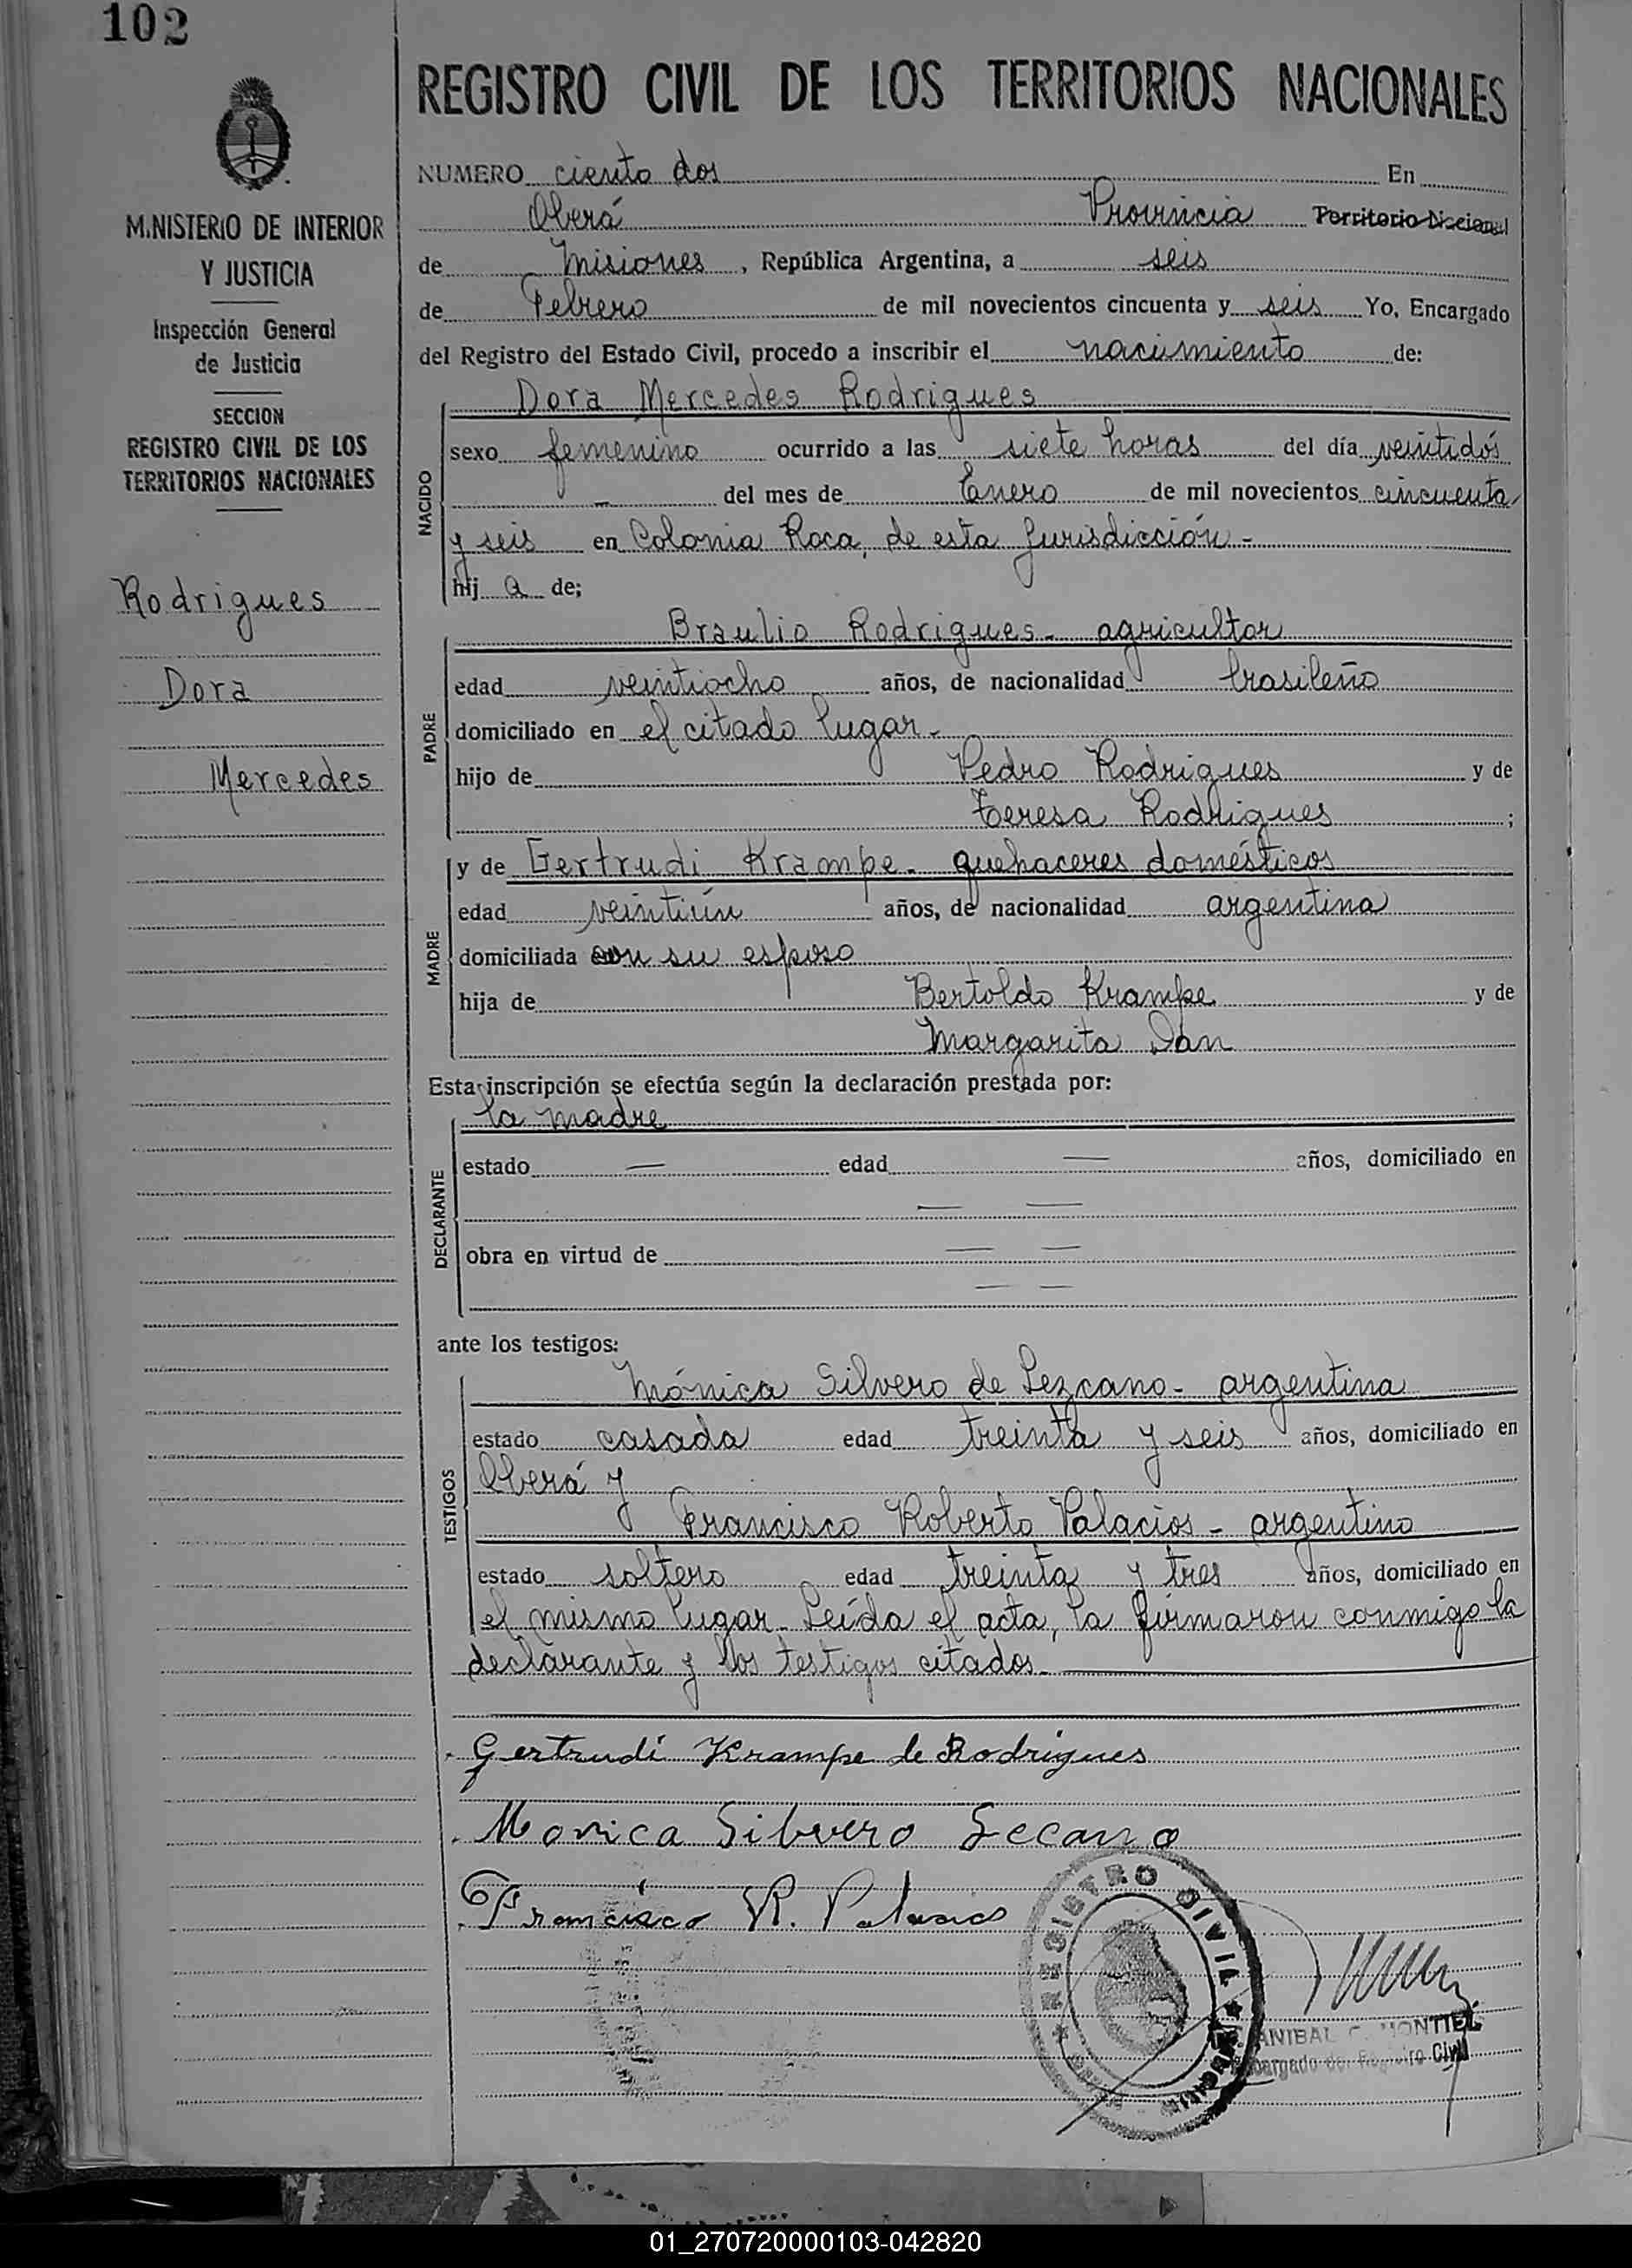 102
REGISTRO CIVIL DE LOS TERRITORIOS NACIONALES
M.NISTERIO DE INTERIOR
Y JUSTICIA
Inspección General
de Justicia
SECCION
REGISTRO CIVIL DE LOS
TERRITORIOS NACIONALES
Rodrigues
Dora
Mercedes
NUMERO ciento dos En
Oberá Provincia Territorio Nacional
de Misiones, República Argentina, a seis
de Febrero de mil novecientos cincuenta y seis Yo, Encargado
del Registro del Estado Civil, procedo a inscribir el nacimiento de:
NACIDO
Dora Mercedes Rodrigues
sexo femenino ocurrido a las siete horas del día veintidós
— del mes de Enero de mil novecientos cincuenta
y seis en Colonia Roca, de esta Jurisdicción -
hij a de;
PADRE
Braulio Rodrigues - agricultor
edad veintiocho años, de nacionalidad brasileño
domiciliado en el citado lugar -
hijo de Pedro Rodrigues y de
Teresa Rodrigues ;
MADRE
y de Gertrudi Krampe - quehaceres domésticos
edad veintiún años, de nacionalidad argentina
domiciliada con su esposo
hija de Bertoldo Krampe y de
Margarita Dan
Esta inscripción se efectúa según la declaración prestada por:
DECLARANTE
la madre
estado — edad — años, domiciliado en
— —
obra en virtud de — —
— —
ante los testigos:
TESTIGOS
Mónica Silvero de Lezcano - argentina
estado casada edad treinta y seis años, domiciliado en
Oberá y
Francisco Roberto Palacios - argentino
estado soltero edad treinta y tres años, domiciliado en
el mismo lugar - Leída el acta, la firmaron conmigo la
declarante y los testigos citados -
Gertrudi Krampe de Rodrigues
Monica Silvero Lecano
Francisco R. Palacios
REGISTRO CIVIL
ANIBAL MONTIEL
Encargado del Registro Civil
01_270720000103-042820